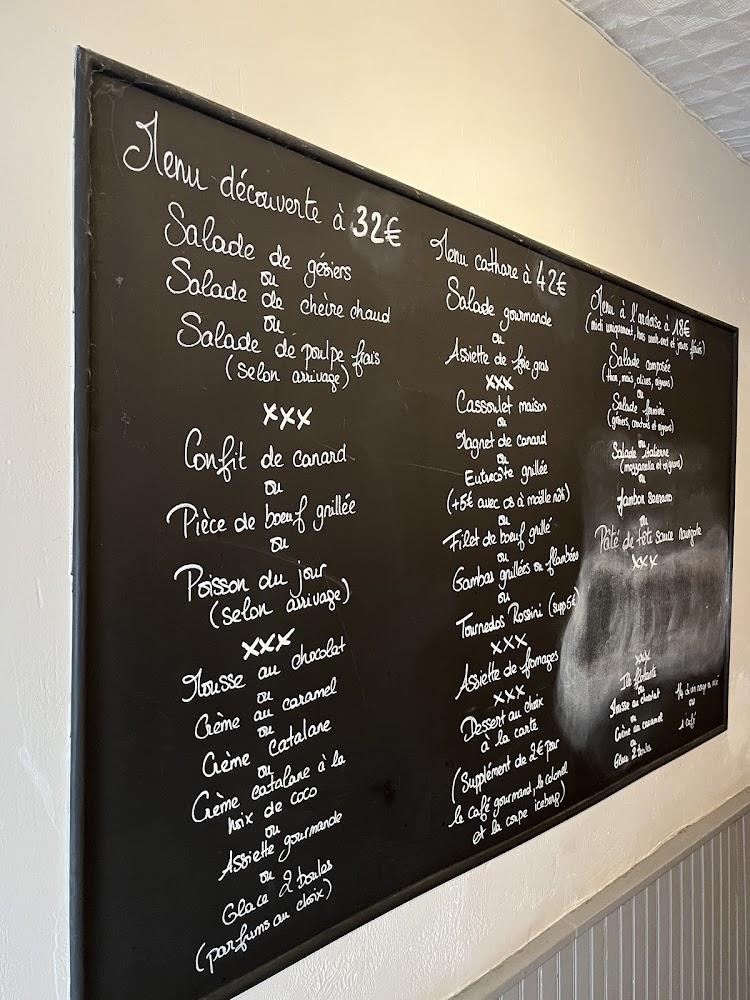 Menu découverte à 32€
Salade de gésiers
ou
Salade de chèvre chaud
ou
Salade de poulpe frais
(selon arrivage)
xxx
Confit de canard
ou
Pièce de boeuf grillée
ou
Poisson du jour
(selon arrivage)
xxx
Mousse au chocolat
ou
Crème au caramel
ou
Crème catalane
ou
Crème catalane à la
noix de coco
ou
Assiette gourmande
ou
Glace 2 boules
(parfums au choix)
Menu cathare à 42€
Salade gourmande
ou
Assiette de foie gras
xxx
Cassoulet maison
ou
Magret de canard
ou
Entrecôte grillée
(+5€ avec os à moëlle rôti)
ou
Filet de boeuf grillé
ou
Gambas grillées ou flambées
ou
Tournedos Rossini (supp 5€)
xxx
Assiette de fromages
xxx
Dessert au choix
à la carte
(Supplément de 2€ pour
le café gourmand, le colonel
et la coupe iceberg)
Menu à l'ardoise à 18€
(midi uniquement, hors week-end et jours fériés)
Salade composée
(thon, maïs, olives, oignons)
ou
Salade fermière
(gésiers, croutons et oignons)
ou
Salade italienne
(mozzarella et oignons)
ou
Jambon serrano
ou
Pâté de tête sauce
xxx
xxx
Ile flottante
ou
Mousse au chocolat
ou
Crème au caramel
ou
Glace 2 boules
ou
1 Café